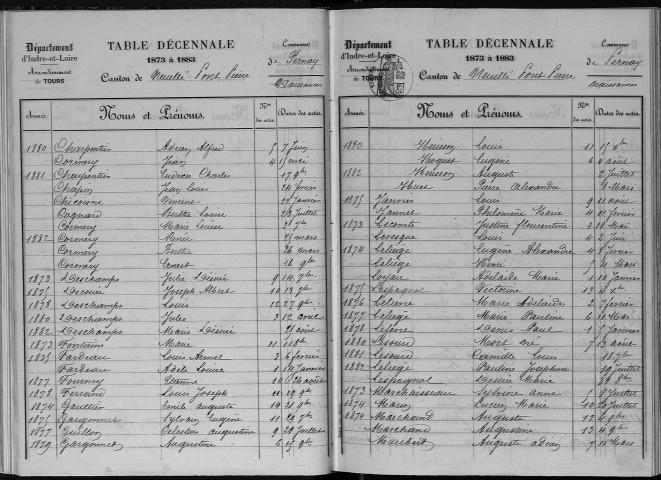 Département
d'Indre-et-Loire
Arrondissement
de TOURS
TABLE DÉCENNALE
1873 à 1883
Canton de Neuillé Pont Pierre
Commune
de Pernay
Naissances
Année.
Noms et Prénoms.
Nos des actes.
Dates des actes.
1880 Charpentier Adrien Alfred 5 7 juin
Cormery Jean 4 15 mai
1881 Charpentier Charles 17 9bre
Chapin Jean Louis 24 février
Chicoisne Vincent 22 janvier
Cognard Berthe Louise 23 juillet
Cormery Marie Louise
1882 Cormery mars
Cormery Berthe 26 mars
Cormery Ernest 16 9bre
1873 Deschamps Julie Désirée 9 14 7bre
1875 Joseph Albert 10 13 7bre
1878 Deschamps Louis 12 27 9bre
1880 Deschamps Jules 3 12 avril
1882 Deschamps Marie Désirée 21 août
1873 Fontaine Marie 11
1875 Fardeau Louis 3 6 février
Fardeau Adèle Louise 1 janvier
1877 Fourmy Etienne 10 26 août
1878 Ferrand Louis Joseph 11 19 9bre
1874 Gautier Emile Auguste 14 21 9bre
1875 Gargonnet Sylvain Eugène 11
1877 Guillon Célestin Augustine 9 28 juillet
1879 Gargonnet Augustine 6 9bre
Département
d'Indre-et-Loire
Arrondissement
de TOURS
TABLE DÉCENNALE
1873 à 1883
Canton de Neuillé Pont Pierre
Commune
de Pernay
Naissances
Année.
Noms et Prénoms.
Nos des actes.
Dates des actes.
1880 Husson Louis 11
Huguet Eugène 6 4 août
1882 Husson Auguste 2 juillet
Huet Pierre Alexandre Mars
1875 Janvier Louis 9 11 août
Jannet Philomène Marie 4 11 février
1873 Lecomte Justine Florentine 2 18 Mai
Levesque Louis 4 2 juin
1874 Leliège Eugène Alexandre 4 8 février
Leliège Henri Mars
Loyau Adélaïde Marie 1 10 janvier
1875 Lespagnol Victorine 13
1876 Lelièvre Marie Adélaïde 2 7 février
1877 Leliège Marie Pauline 6 11 Mars
1878 Lefèvre Denis Paul 1 5 janvier
1880 Lesourd Mort né 7 13 août
1881 Lesourd Camille Louis
1882 Leliège Pauline Joséphine 19 juillet
Lespagnol Désiré Marie
1873 Marchaisseau Sylvine Anne 8 juillet
1874 Marie Lucien Marie 10 juillet
1874 Marchand Auguste 17
Marchand Augustine 13
Maubert Auguste Adrien 7 15 Mars